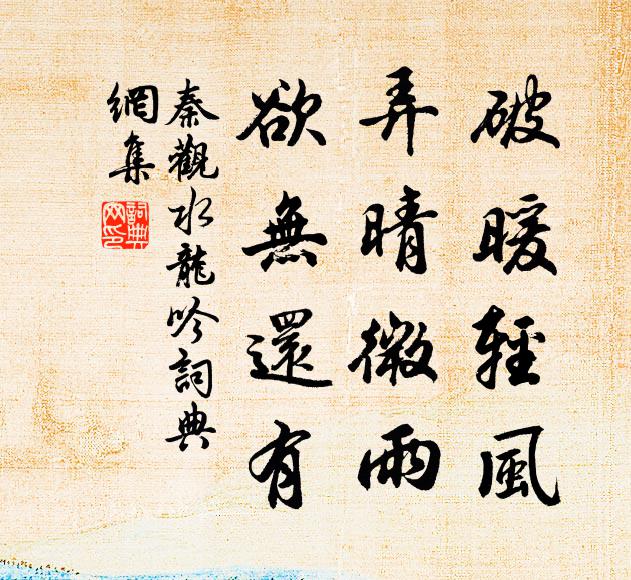 破暖輕風
弄晴微雨
欲無還有
秦觀水龍吟詞典
網集
詞典
网印